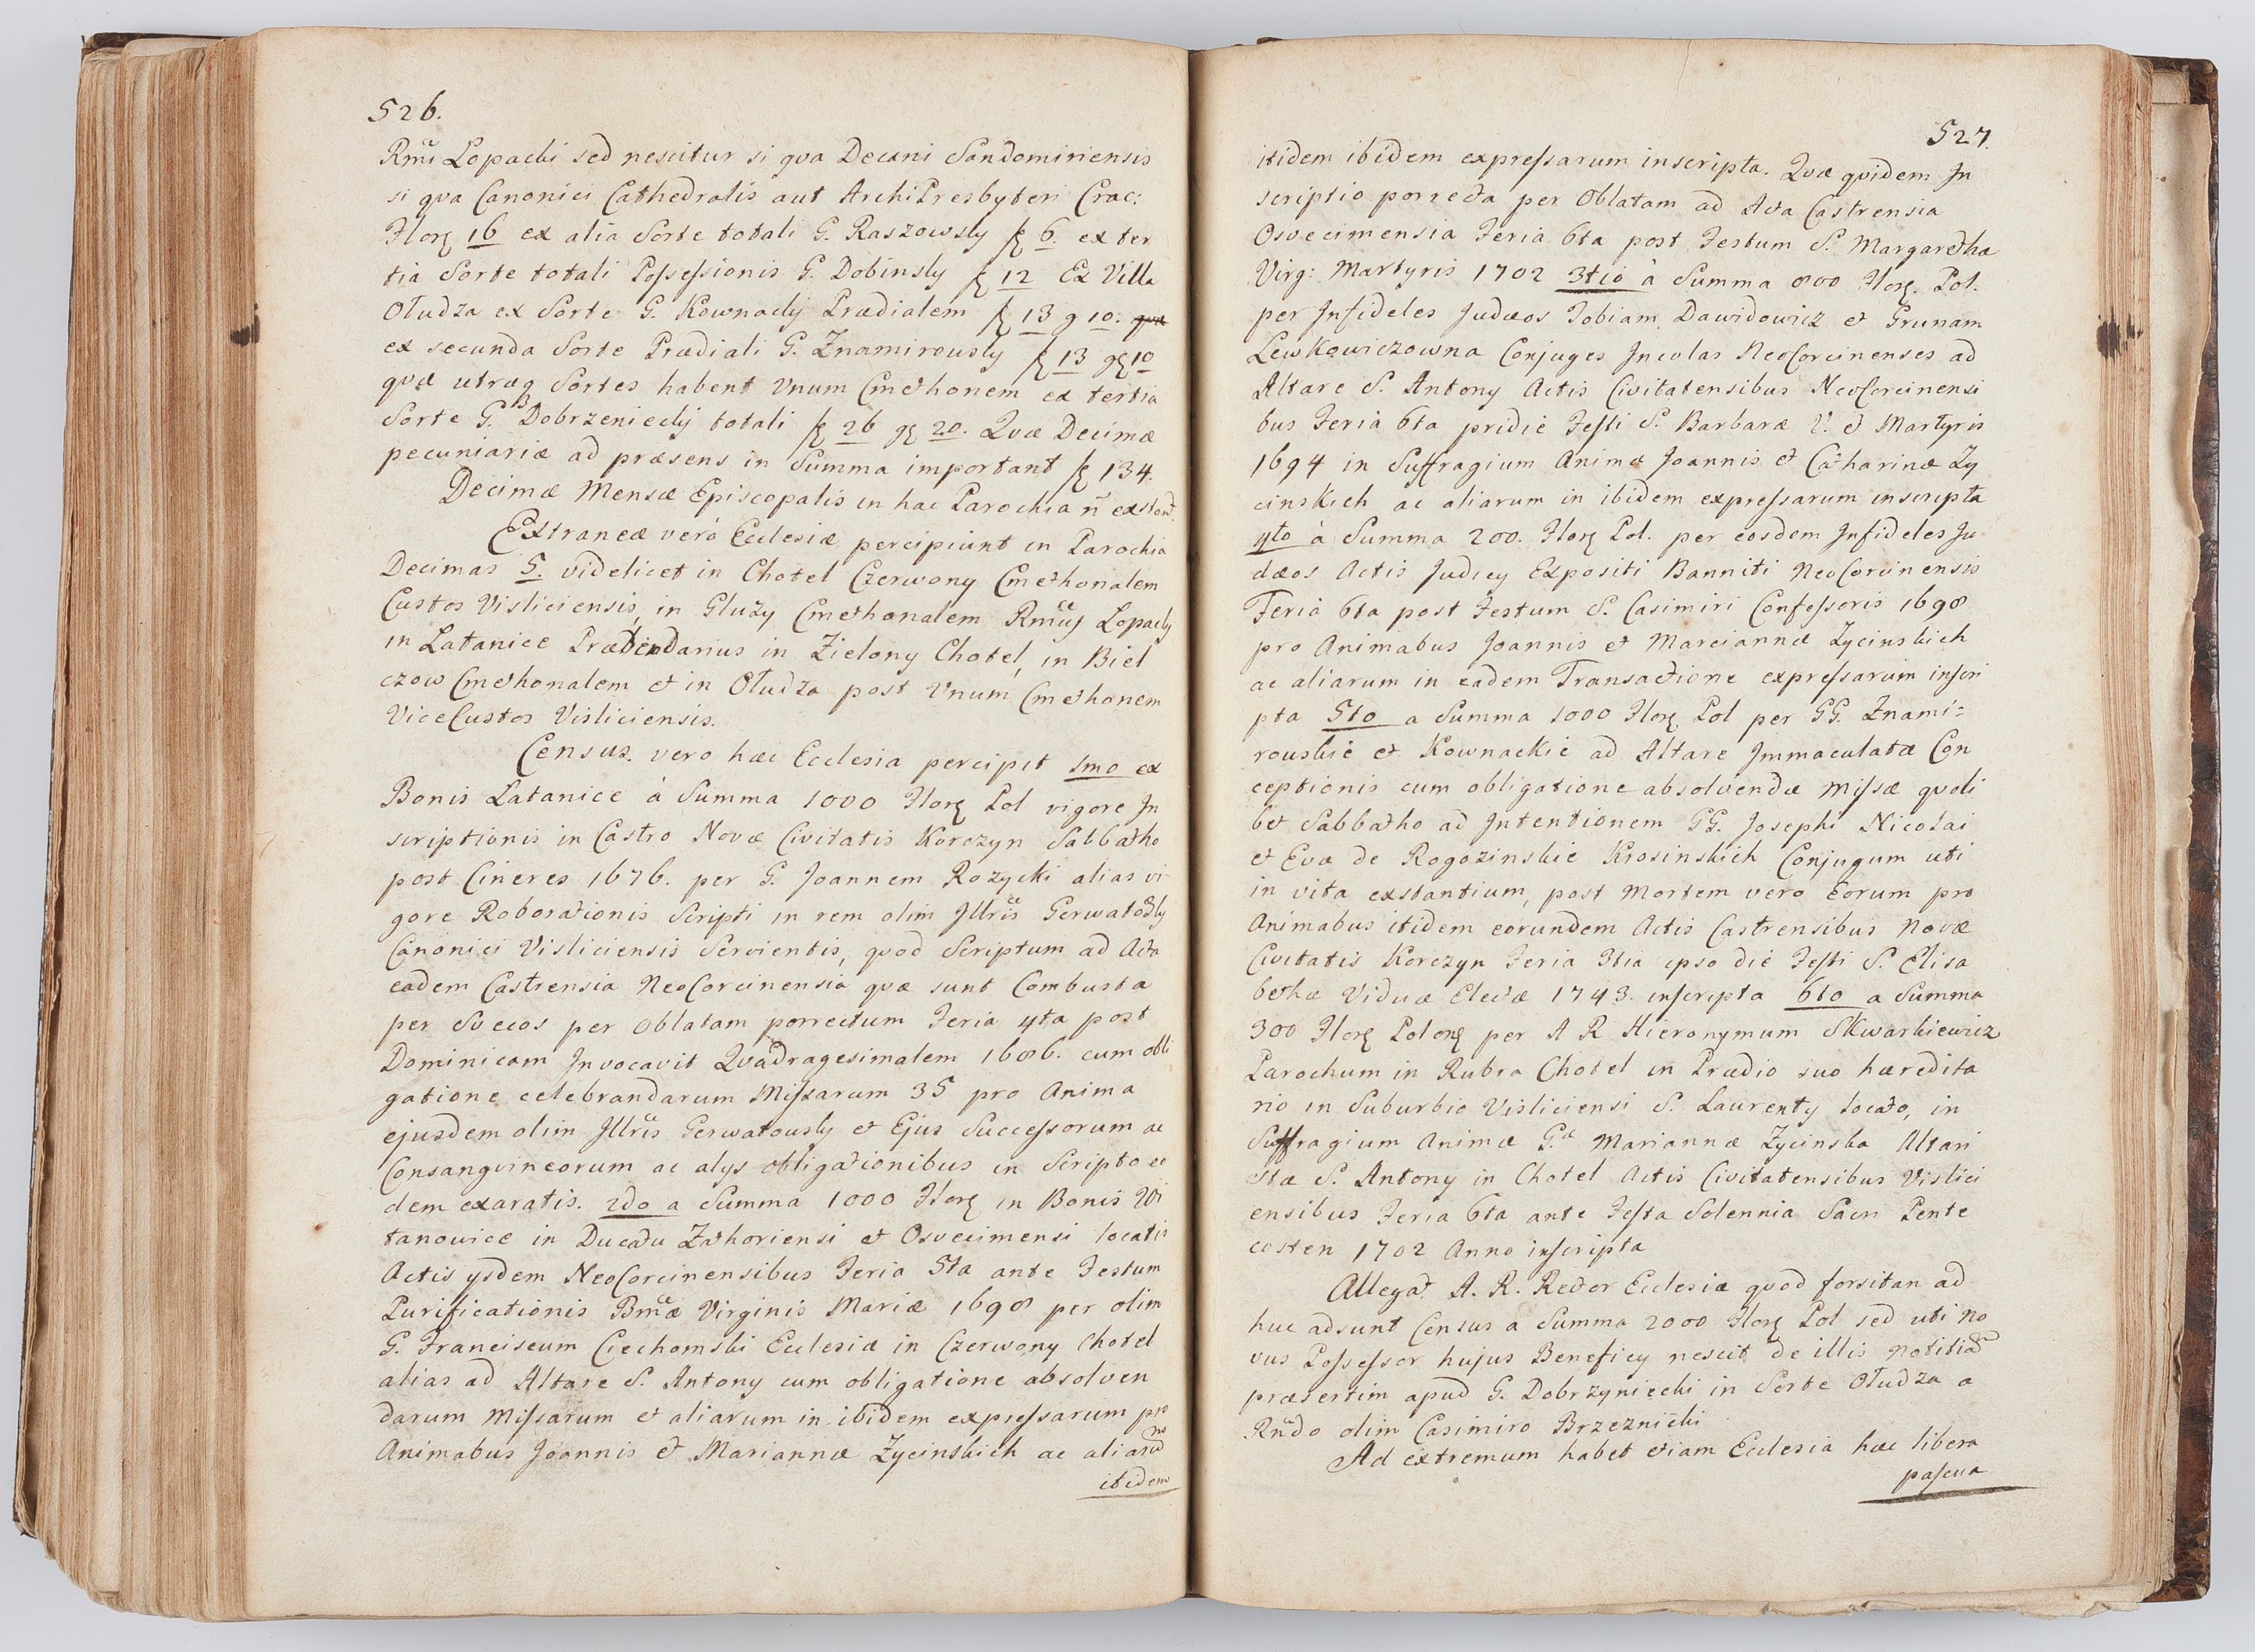 526.
Rmi Lopacki sed nescitur si qva Decani Sandomiriensis
si qva Canonici Cathedralis aut ArchiPresbyteri Crac:
Flor 16 ex alia Sorte totali G. Raszowsky f 6. ex ter
tia Sorte totali Possessionis G. Dobinsky f 12 Ex Villa
Oludza ex Sorte G. Kownacky Prædialem f 13 g 10.
ex secunda Sorte Prædiali G. Znamirowsky f 13 g 10
quæ utraq Sortes habent Unum Cmethonem ex tertia
Sorte G. Dobrzeniecky totali f 26 g 20. Qvæ Decimæ
pecuniariæ ad præsens in Summa important f 134.
Decimæ Mensæ Episcopalis in hac Parochia ñ extant.
Extraneæ veró Ecclesiæ percipiunt in Parochia
Decimas 5. videlicet in Chotel Czerwony Cmethonalem
Custos Visliciensis, in Gluzy Cmethonalem Rmus Lopacky
in Latanice Præbendarius in Zielony Chotel, in Biel
czow Cmethonalem et in Oludza post Unum Cmethonem
ViceCustos Visliciensis.
Census. vero hæc Ecclesia percipit 1mo ex
Bonis Latanice á Summa 1000 Flor Pol vigore In
scriptionis in Castro Novæ Civitatis Korczyn Sabbatho
post Cineres 1676. per G. Joannem Rozycki alias vi
gore Roborationis Scripti in rem olim Illris Gerwatosky
Canonici Visliciensis Servientis, quod Scriptum ad Acta
eadem Castrensia NeoCorcinensia quæ sunt Combusta
per Svecos per Oblatam porrectum Feria 4ta post
Dominicam Invocavit Qvadragesimalem 1686. cum obli
gatione celebrandarum Missarum 35 pro Anima
ejusdem olim Illris Gerwatowsky et Ejus Successorum ac
Consangvineorum ac alys obligationibus in Scripto eo
dem exaratis. 2do a Summa 1000 Flor in Bonis Wi
tanowice in Ducatu Zathoriensi et Osvecimensi locatis
Actis ysdem NeoCorcinensibus Feria 5ta ante Festum
Purificationis Bmæ Virginis Mariæ 1698 per olim
G. Franciscum Ciechomski Ecclesiæ in Czerwony Chotel
alias ad Altare S. Antony cum obligatione absolven
darum Missarum et aliarum in ibidem expressarum pro
Animabus Joannis et Mariannæ Zycinskich ac aliarum
itidem
527.
itidem ibidem expressarum inscripta. Qvæ qvidem In
scriptio porrecta per Oblatam ad Acta Castrensia
Osvecimensia Feria 6ta post Festum S. Margaretha
Virg: Martyris 1702 3tió á Summa 800 Flor. Pol.
per Infideles Judæos Tobiam Dawidowicz et Grunam
Lewkowiczowna Conjuges Incolas NeoCorcinenses ad
Altare S. Antony Actis Civitatensibus NeoCorcinensi
bus Feria 6ta pridie Festi S. Barbaræ V. et Martyris
1694 in Suffragium Animæ Joannis et Catharinæ Zy
cinskich ac aliarum in ibidem expressarum inscripta
4to á Summa 200. Flor Pol. per eosdem Infideles Ju
dæos Actis Judicy Expositi Banniti NeoCorcinensis
Feria 6ta post Festum S. Casimiri Confessoris 1698
pro Animabus Joannis et Mariannæ Zycinskich
ac aliarum in eadem Transactione expressarum inscri
pta 5to a Summa 1000 Flor Pol per GG. Znami=
rouskie et Kownackie ad Altare Immaculatæ Con
ceptionis cum obligatione absolvendæ Missæ qvoli
bet Sabbatho ad Intentionem GG. Josephi Nicolai
et Evæ de Rogozinskie Krosinskich Conjugum uti
in vita exstantium, post Mortem vero Eorum pro
Animabus itidem eorundem Actis Castrensibus Novæ
Civitatis Korczyn Feria 3tia ipso die Festi S. Elisa
bethæ Viduæ Electæ 1743. inscripta 6to a Summa
300 Flor Polon per A R Hieronymum Skwarkiewicz
Parochum in Rubra Chotel in Prædio suo hæredita
rio in Suburbio Visliciensi S. Laurenty locato, in
Suffragium Animæ G.æ Mariannæ Zycinska Altari
stæ S. Antony in Chotel Actis Civitatensibus Vislici
ensibus Feria 6ta ante Festa Solennia Sacri Pente
costen 1702 Anno inscripta
Allegat. A. R. Rector Ecclesiæ qvod forsitan ad
huc adsunt Census a Summa 2000 Flor Pol sed uti no
vus Possessor hujus Beneficy nescit de illis notitiam
præsertim apud G. Dobrzyniecki in Sorte Oludza a
Rndo olim Casimiro Brzeznicki
Ad extremum habet etiam Ecclesia hæc libera
pascua